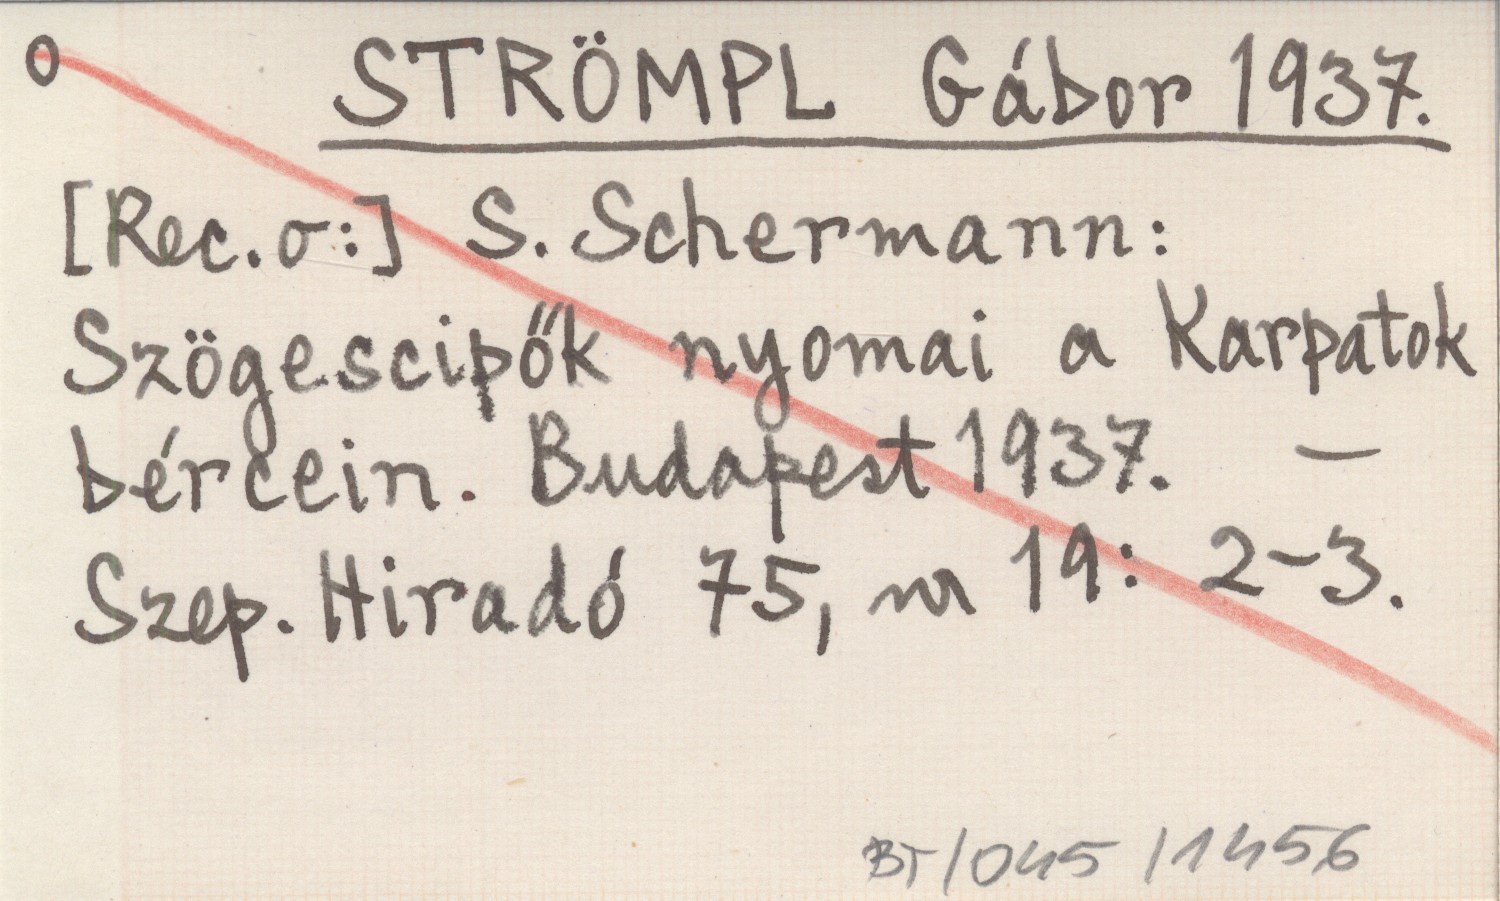 0 STRÖMPL Gábor 1937.
[Rec. o:] S. Schermann:
Szögescipők nyomai a Karpatok
bércein. Budapest 1937. —
Szep. Hiradó 75, nr 19: 2-3.
BT/045/1456